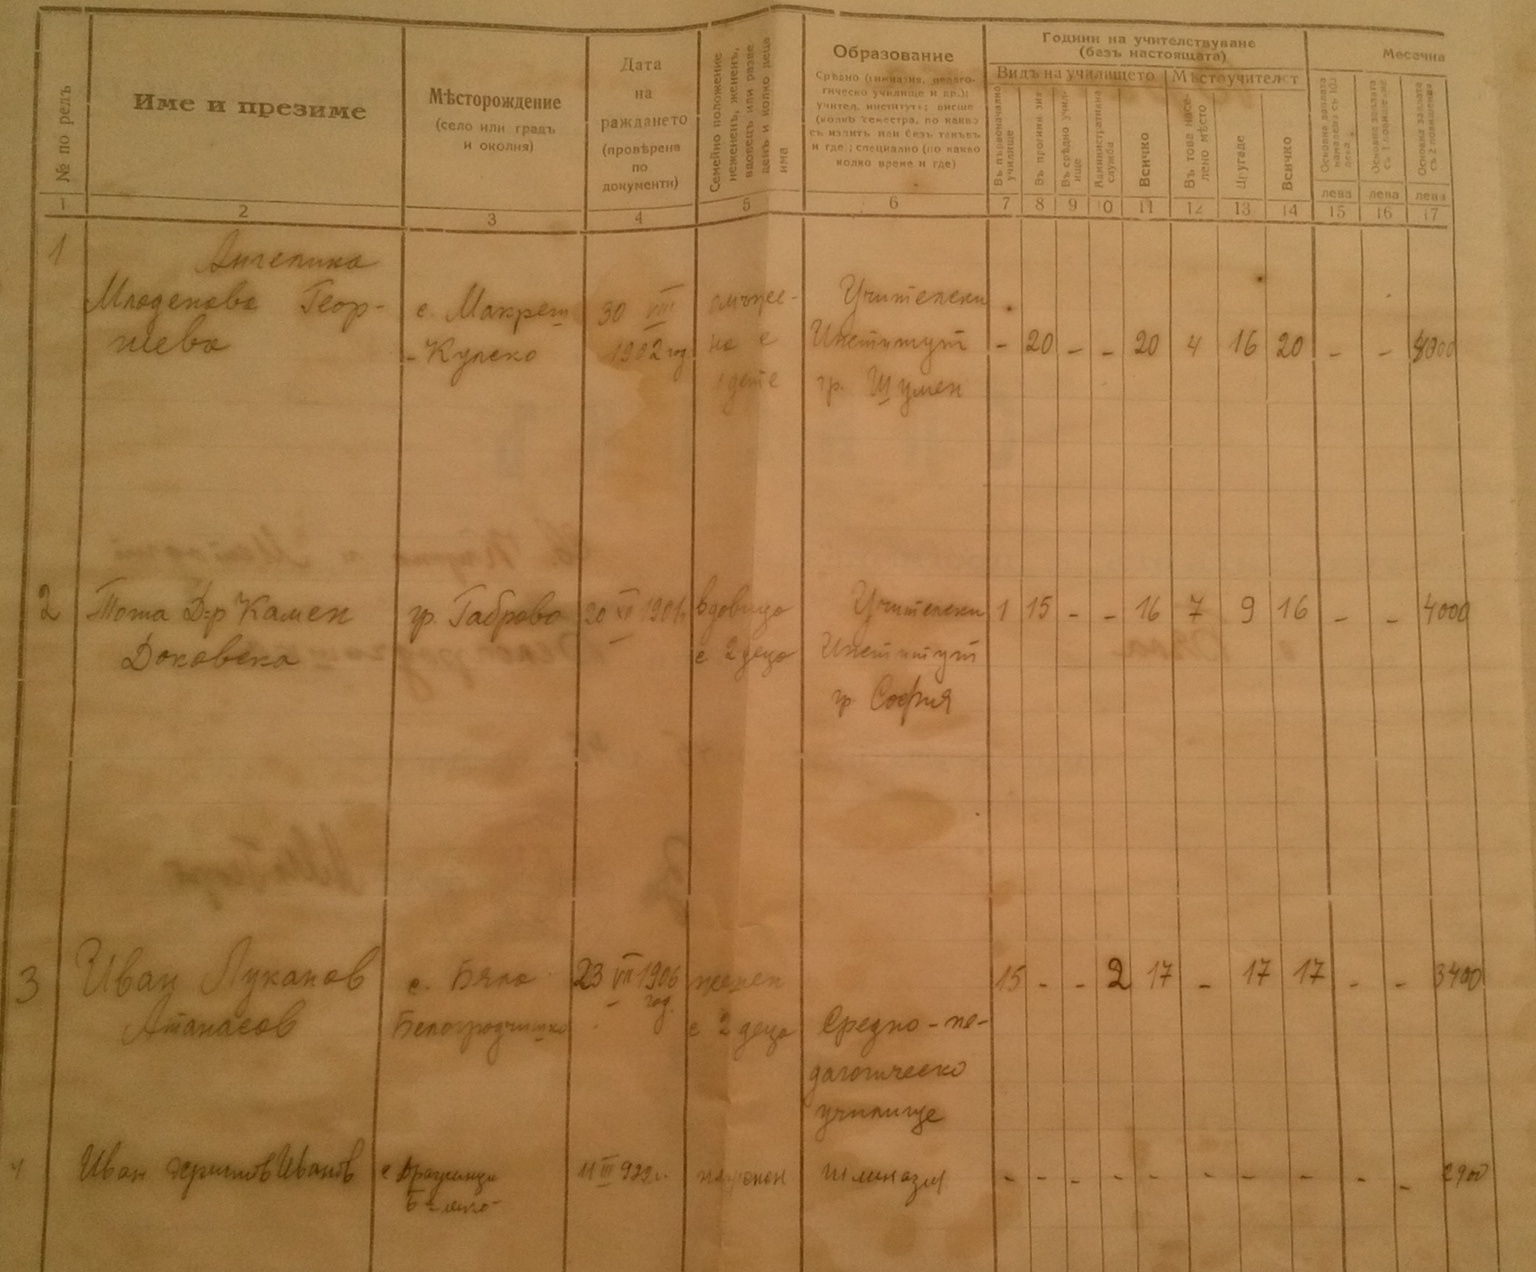 № по редъ
Име и презиме
Мѣсторождение
(село или градъ
и околия)
Дата
на
раждането
(провѣрена
по
документи)
Семейно положение
нежененъ, жененъ,
вдовецъ или разве
денъ и колко деца
има
Образование
Срѣдно (гимназия, педаго-
гическо училище и др.);
учител. институтъ; висше
(колко семестра, по какво
съ изпитъ или безъ такъвъ
и где; специално (по какво
колко време и где)
Години на учителствуване
(безъ настоящата)
Видъ на училището
Мѣстоучителст
Въ първоначално
училище
Въ прогимназия
Въ срѣдно учил-
ище
Административна
служба
Всичко
Въ това насе-
лено мѣсто
Другаде
Всичко
Месечна
Основна заплата
намалена съ 10%
Основна заплата
съ 1 повишение
Основна заплата
съ 2 повишения
лева лева лева
1 2 3 4 5 6 7 8 9 10 11 12 13 14 15 16 17
1 Ангелина
Младенова Геор-
гиева
с. Макреш
- Кулско
30 VIII
1902 год
омъже-
на с
1 дете
Учителски
Институт
гр. Шумен
- 20 - - 20 4 16 20 - - 4000
2 Тота Д-р Камен
Доковска
гр. Габрово
20 XI 1901 г.
вдовица
с 2 деца
Учителски
Институт
гр София
1 15 - - 16 7 9 16 - - 4000
3 Иван Луканов
Атанасов
с. Бяла
Белоградчишко
23 VII 1906
год.
женен
с 2 деца
Средно-пе-
дагогическо
училище
15 - - 2 17 - 17 17 - - 3400
4 Иван Иванов
с
11 III 922 г.
гимназия
- - - - - - - - - - 2900